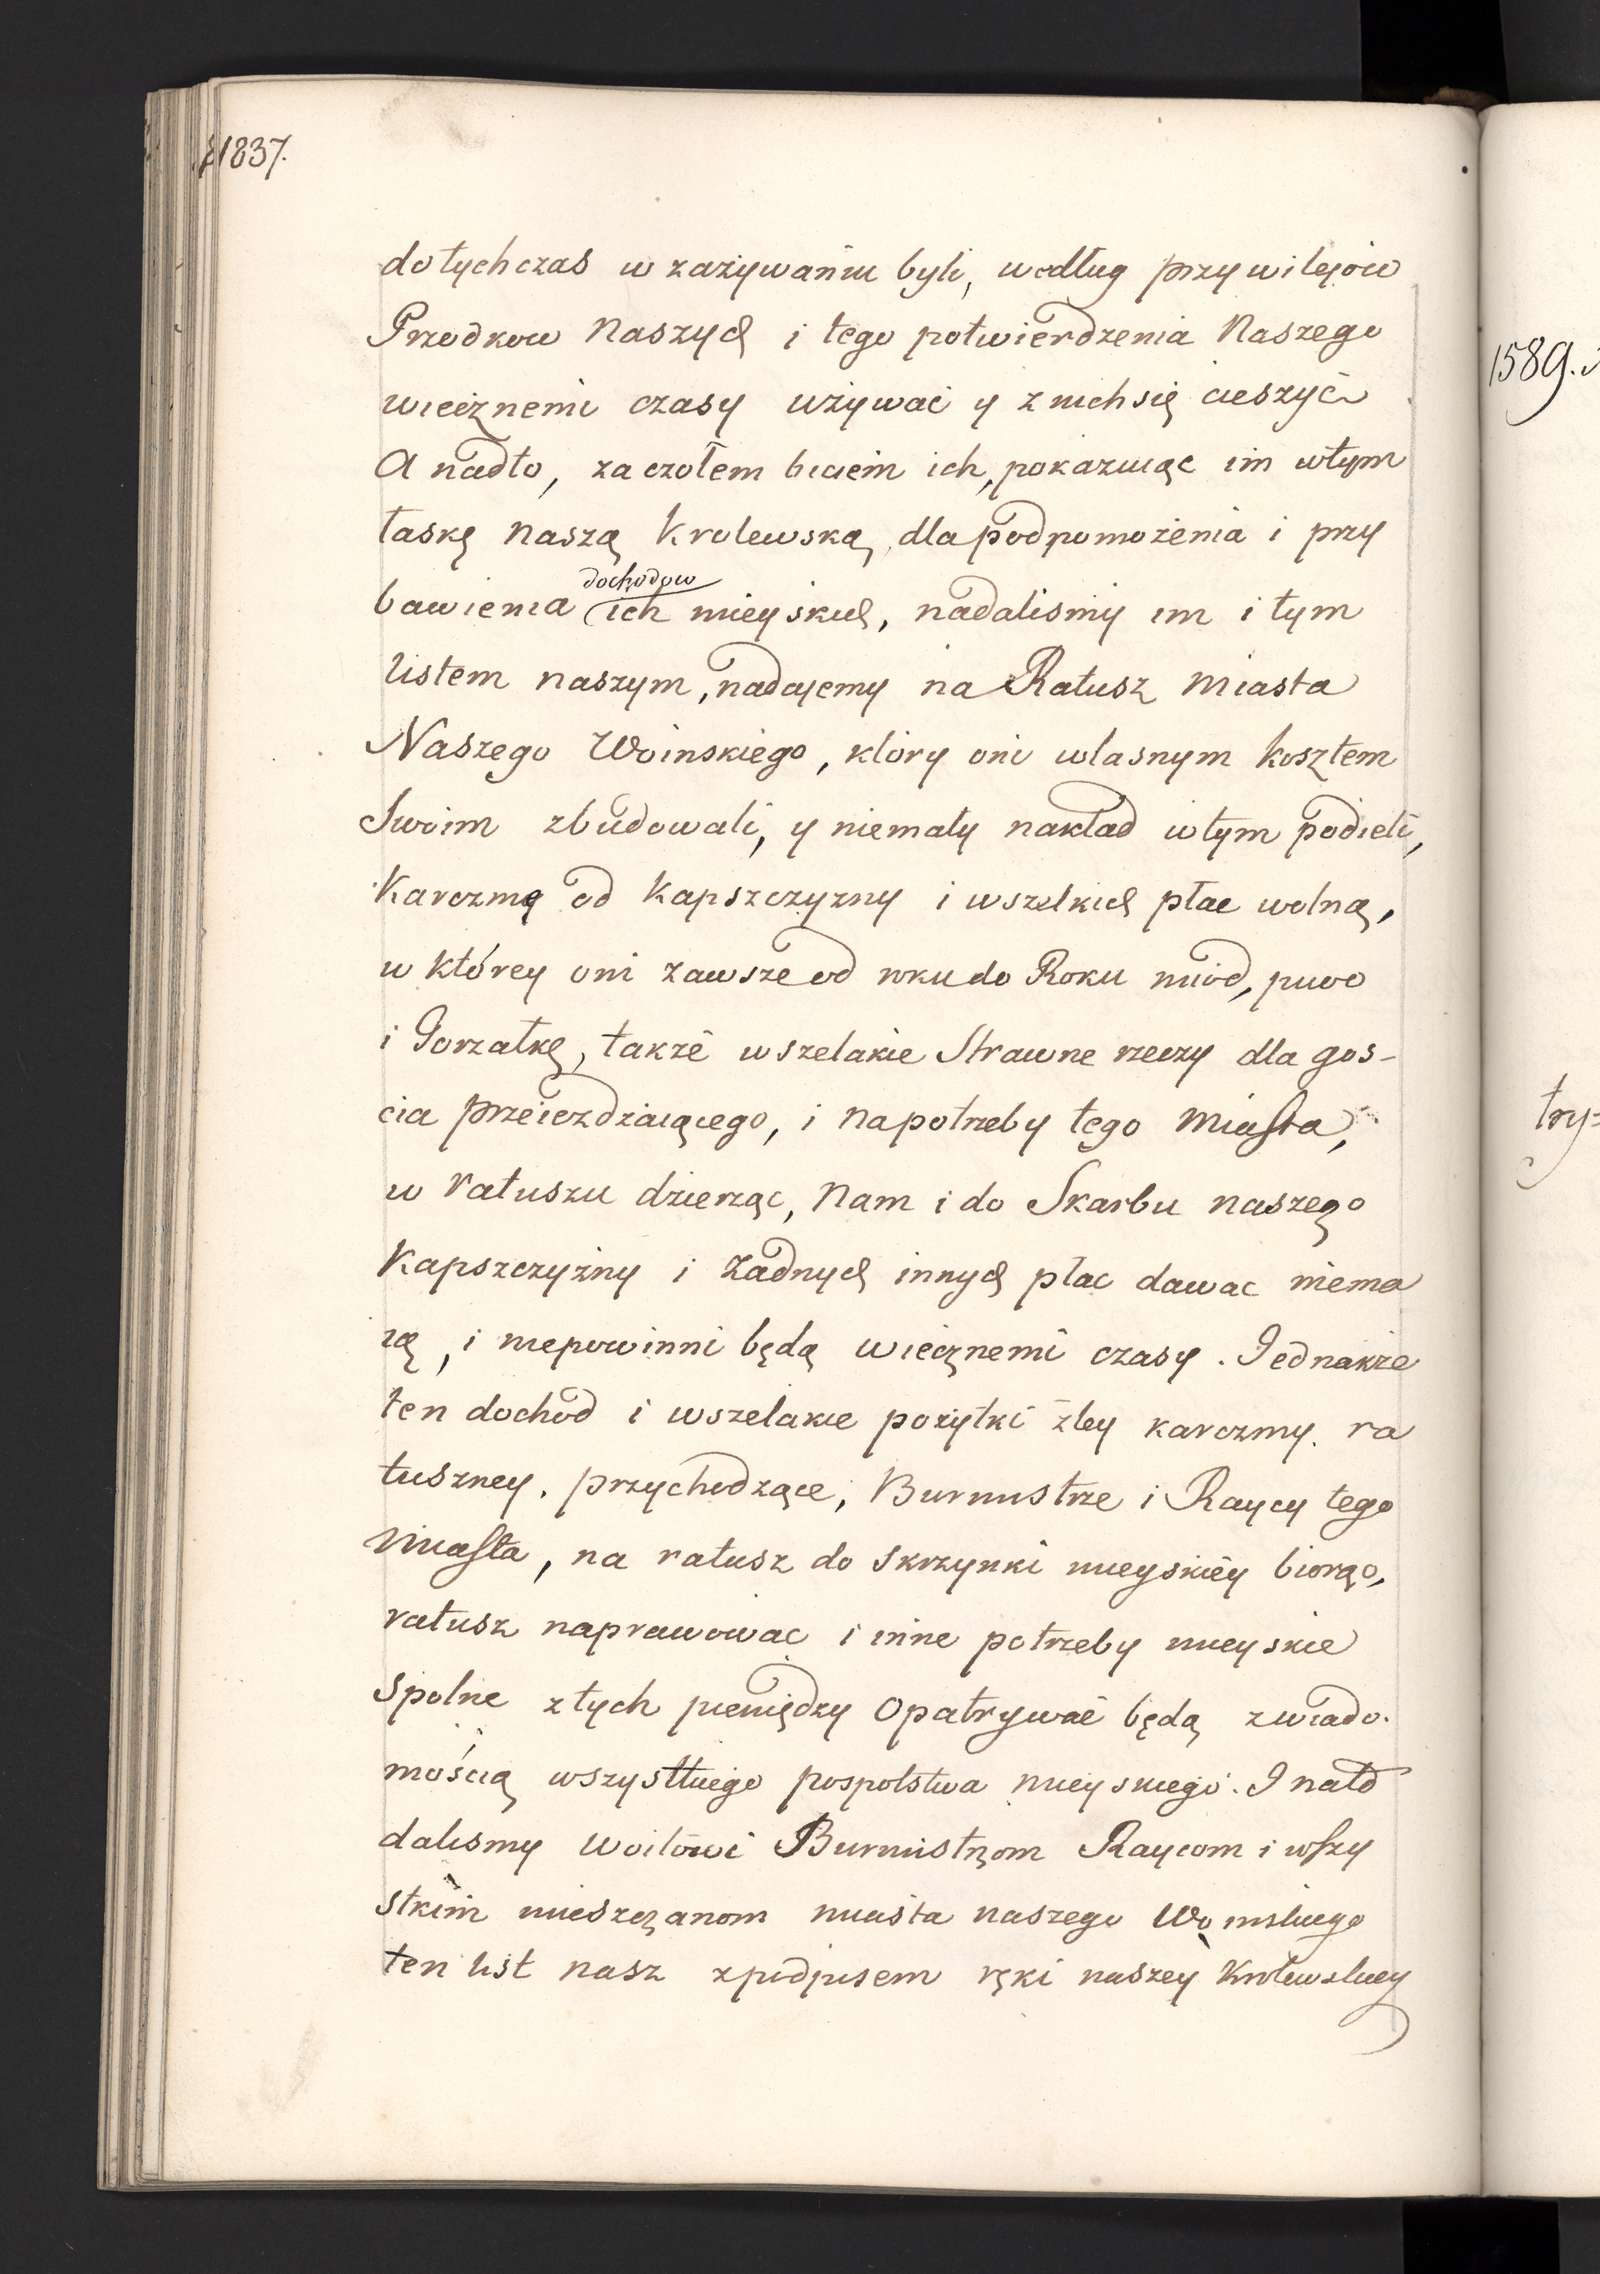 1837.
dotychczas w zażywaniu byli, według przywilejów
Przodkow Naszych i tego potwierdzenia Naszego
wiecznemi czasy używać y z nich się cieszyć
A nadto, za czołem biciem ich, pokazuiąc im w tym
łaskę Naszą Krolewską, dla podpomożenia i przy
dochodow
bawienia ich mieyskich, nadalismy im i tym
listem naszym, nadajemy na Ratusz Miasta
Naszego Woinskiego, który oni własnym kosztem
Swoim zbudowali, y niemały nakład w tym podieli,
Karczmę od Kapszczyzny i wszelkich płac wolną,
w którey oni zawsze od roku do Roku miód, piwo
i Gorzałkę, także wszelakie Strawne rzeczy dla gos-
cia przeiezdziaiącego, i na potrzeby tego Miasta,
w ratuszu dzierząc, Nam i do Skarbu naszego
Kapszczyzny i żadnych innych płac dawac niema
ią, i niepowinni będą wiecznemi czasy. Jednakże
ten dochod i wszelakie pożytki z tey karczmy ra
tuszney, przychodzące, Burmistrze i Raycy tego
Miasta, na ratusz do skrzynki mieyskiéy biorąc,
ratusz naprawować i inne potrzeby mieyskie
Spolne z tych pieniędzy Opatrywać będą z wiado-
mością wszystkiego pospolstwa mieyskiego. I na to
dalismy Woitowi Burmistrzom Raycom i wszy
stkim mieszczanom miasta naszego Woinskiego
ten list nasz z podpisem ręki naszey Krolewskiey
1589.
try=